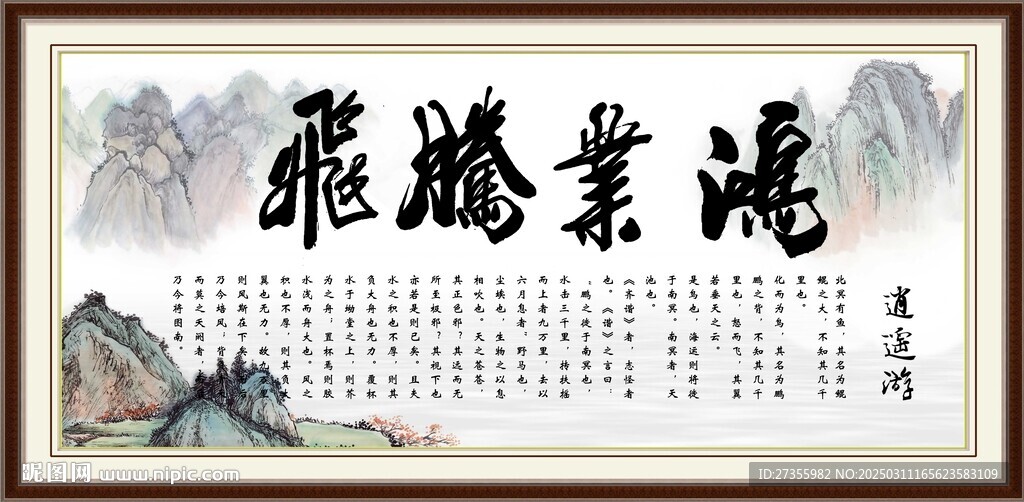 鴻業騰飛
逍遥游
北冥有鱼，其名为鲲
鲲之大，不知其几千
里也。
化而为鸟，其名为鹏
鹏之背，不知其几千
里也，怒而飞，其翼
若垂天之云。
是鸟也，海运则将徙
于南冥。南冥者，天
池也。
《齐谐》者，志怪者
也。《谐》之言曰：
“鹏之徙于南冥也，
水击三千里，抟扶摇
而上者九万里，去以
六月息者”野马也，
尘埃也，生物之以息
相吹也。天之苍苍，
其正色邪？其远而无
所至极邪？其视下也
亦若是则已矣。且夫
水之积也不厚，则其
负大舟也无力。覆杯
水于坳堂之上，则芥
为之舟；置杯焉则胶
水浅而舟大也。风之
积也不厚，则其负大
翼也无力。故九万里
则风斯在下矣，后
乃今培风；背
而莫之夭阏者，
乃今将图南。
昵图网 www.nipic.com
ID:27355982 NO:20250311165623583109